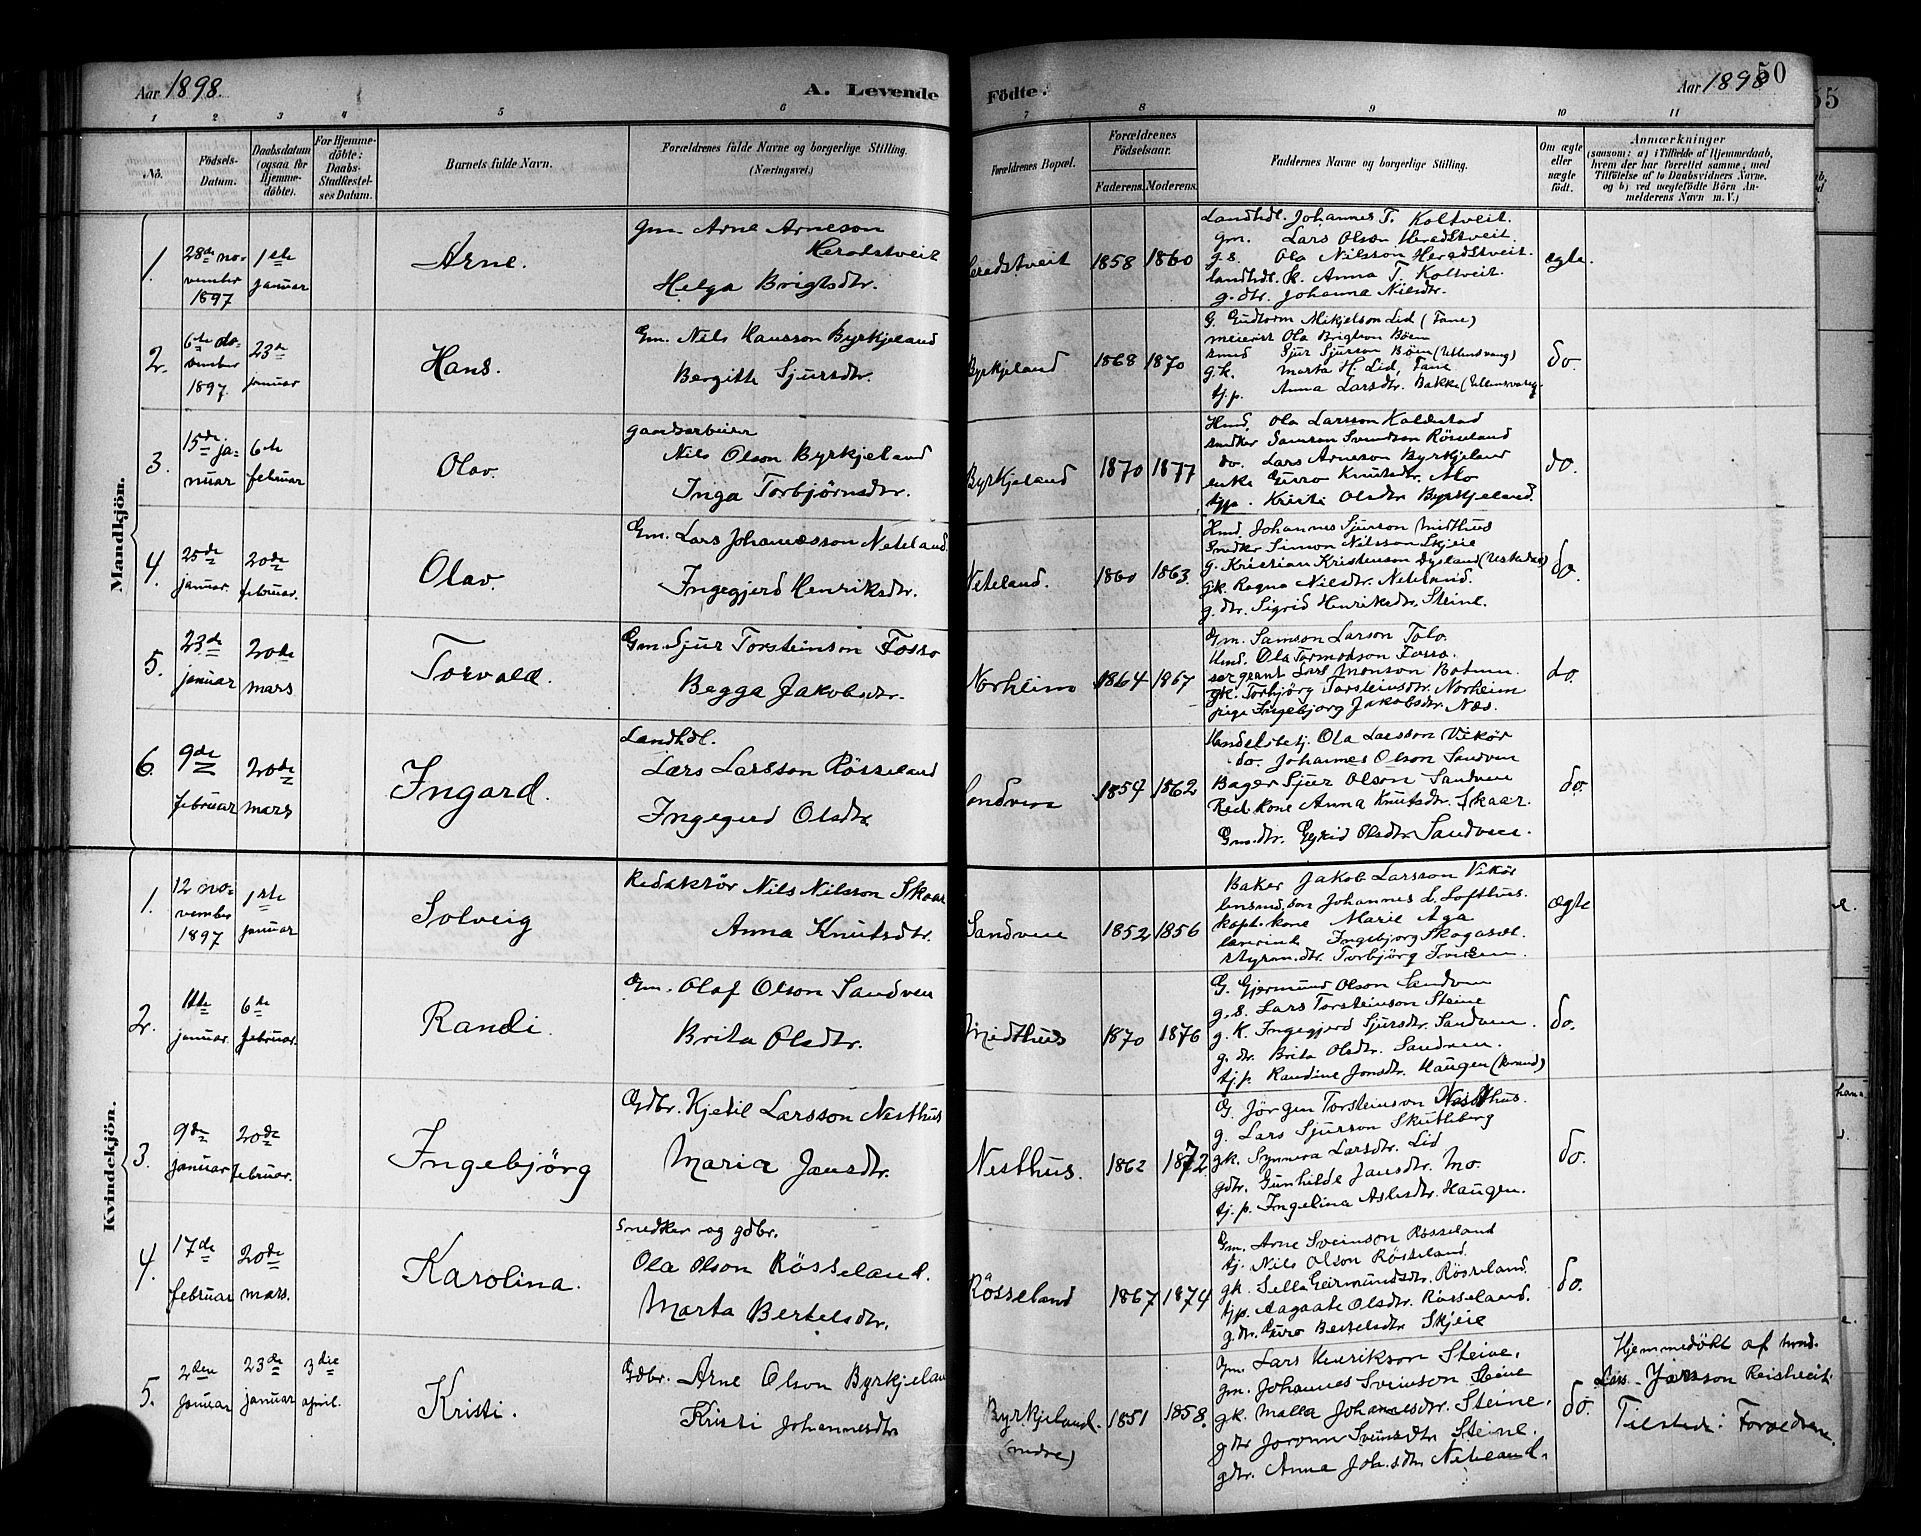 Aar 1898.
A. Levende
Födte.
Aar 1898
50
55
1 2 3 4 5 6 7 8 9 10 11
No.
Födsels-Datum.
Daabsdatum (ogsaa for Hjemmedöbte).
For Hjemmedöbte: Daabs-Stadfæstelses Datum.
Barnets fulde Navn.
Forældrenes fulde Navne og borgerlige Stilling.
(Næringsvei.)
Forældrenes Bopæl.
Forældrenes Födselsaar.
Faderens. Moderens.
Faddernes Navne og borgerlige Stilling.
Om ægte eller uægte födt.
Anmærkninger
(saasom: a) i Tilfælde af Hjemmedaab, hvem der har forrettet samme, med Tilföielse af to Daabsvidners Navne, og b) ved uægtefödte Börn Anmelderens Navn m. V.)
Mandkjön.
1. 28de november 1897
1ste januar
Arne.
Gm. Arne Arneson Heradstveit
Helga Brigtsdtr.
Heradstveit 1858 1860
Landhdl. Johannes T. Koltveit.
Gm. Lars Olson Heradstveit
g.s. Ola Nilsson Heradstveit.
landhdl. k. Anna T. Koltveit.
g. dtr. Johanna Nilsdtr.
ægte.
2. 6te november 1897.
23de januar
Hans.
Gm. Nils Hansson Byrkjeland
Bergitte Sjursdtr.
Byrkjeland 1868 1870
G. Gudtorm Mikjelson Lid (Fane)
meierist Ola Brigtson Böen
smed Sjur Sjurson Böen (Ullensvang)
g.k. Marta H. Lid, Fane
tj.p. Anna Larsdtr. Bakke (Ullensvang.
do.
3. 15de januar
6te februar
Olav.
gaardsarbeier
Nils Olson Byrkjeland
Inga Torbjörnsdtr.
Byrkjeland 1870 1877
Hmd. Ola Larsson Kaldestad
snedker Samson Svendson Röseland
do. Lars Arneson Byrkjeland
enke Guro Knutsdtr. Mo
tjp. Kristi Olsdtr Byrkjeland.
do.
4. 25de januar.
20de februar.
Olav.
Gm. Lars Johannesson Neteland.
Ingegjerd Henriksdtr.
Neteland. 1860 1863.
Hmd. Johannes Sjurson Midthus
Snedkr Simon Nilsson Skjeie
g. Kristian Kristenson Dysland
gk. Ragna Nilsdtr. Neteland.
g. dtr. Sigrid Henriksdtr. Steine.
do.
5. 23de januar
20de mars
Torvald.
Gm. Sjur Torsteinson Fosso
Begga Jakobsdtr.
Norheim 1864 1867
Gm. Samson Larson Tolo.
Hmd. Ola Tormodson Fosso.
sergeant Lars Monson Botnen.
gk. Torbjörg Torsteinsdtr. Norheim
pige Ingebjorg Jakobsdtr. Næs.
do.
6. 9de februar
20de mars
Ingard.
Landhdl.
Lars Larsson Rösseland
Ingegerd Olsdtr
Sandven 1854 1862
Handelsbetj. Ola Larsson Vikör
do. Johannes Olson Sandven
Bager Sjur Olson Sandven
Red. kone Anna Knutsdtr. Skaar.
Gm.dtr. Gyrid Olsdtr Sandven.
do.
Kvindekjön.
1. 12 november 1897
1ste januar
Solveig
Redaktör Nils Nilsson Skaar
Anna Knutsdtr.
Sandven 1852 1856
Baker Jakob Larsson Vikör
lensmd. sön Johannes L. Lofthus.
kapt. kone Marie Aga
lærerinde Ingebjorg Skogasel.
styrm.dtr. Torbjörg
ægte
2. 11te januar.
6te februar.
Randi.
Gm. Olaf Olson Sandven
Brita Olsdtr.
Midthus 1870 1876
G. Gjermund Olson Sandven
g.s. Lars Torsteinson Steine
g.k. Ingegjerd Sjursdtr. Sandven.
g. dtr. Brita Olsdtr. Sandven.
tj.p. Randine Jonsdtr. Haugen
do.
3. 9de januar
20de februar.
Ingebjörg
Gdbr. Kjetil Larsson Nesthus
Maria Jansdtr.
Nesthus. 1862 1872.
G. Jörgen Torsteinson Nesthus.
g. Lars Sjurson Skutleberg
gk. Synneva Larsdtr. Lid
gdtr. Gunhilde Jansdtr. Mo.
tj.p. Ingelina Aslesdtr. Haugen.
do.
4. 17de februar
20de mars.
Karolina.
Snedker og gdbr.
Ola Olson Rösseland.
Marta Bertelsdtr.
Rösseland 1867 1874
Gm. Arne Sveinson Rösseland
tj. Nils Olson Rösseland.
gk. Sella Geirmundsdtr. Rösseland.
tjp. Aagaate Olsdtr. Rösseland.
g.dtr. Guro Bertelsdtr Skjeie
do.
5. 2den Januar
23de januar
3die april.
Kristi.
Gdbr. Arne Olson Byrkjeland
Kristi Johannesdtr
Byrkjeland. (nedre) 1851 1858.
Gm. Lars Henrikson Steine.
gm. Johannes Sveinson Steine
gk. Malla Johannesdtr. Steine.
gdtr Jorunn Sveinsdtr Steine.
gdtr. Anna Joh.sdtr Neteland.
do.
Hjemmedöbt af hmd.
Lars Jansson
Tilstede: Forældrene.